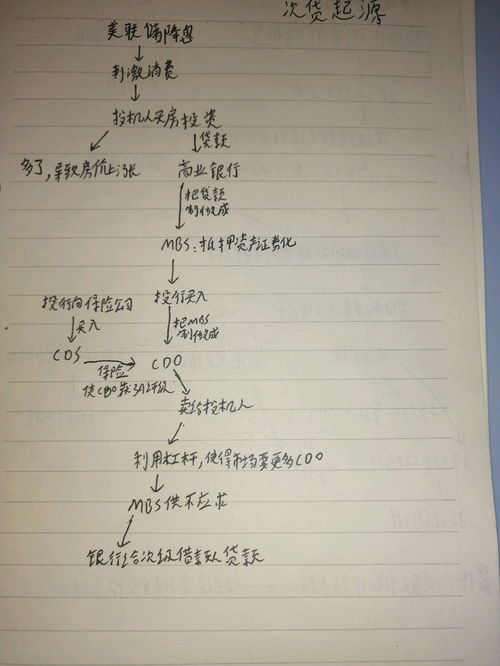 次贷起源
美联储降息
刺激消费
投机人买房投资
贷款
多了,导致房价上涨
商业银行
把贷款
制作成
MBS:抵押资产证券化
投行向保险公司
投行买入
买入
把MBS
制作成
CDS
CDO
保险
使CDO获3A评级
卖给投机人
利用杠杆,使得市场要更多CDO
MBS供不应求
银行给次级借款人贷款